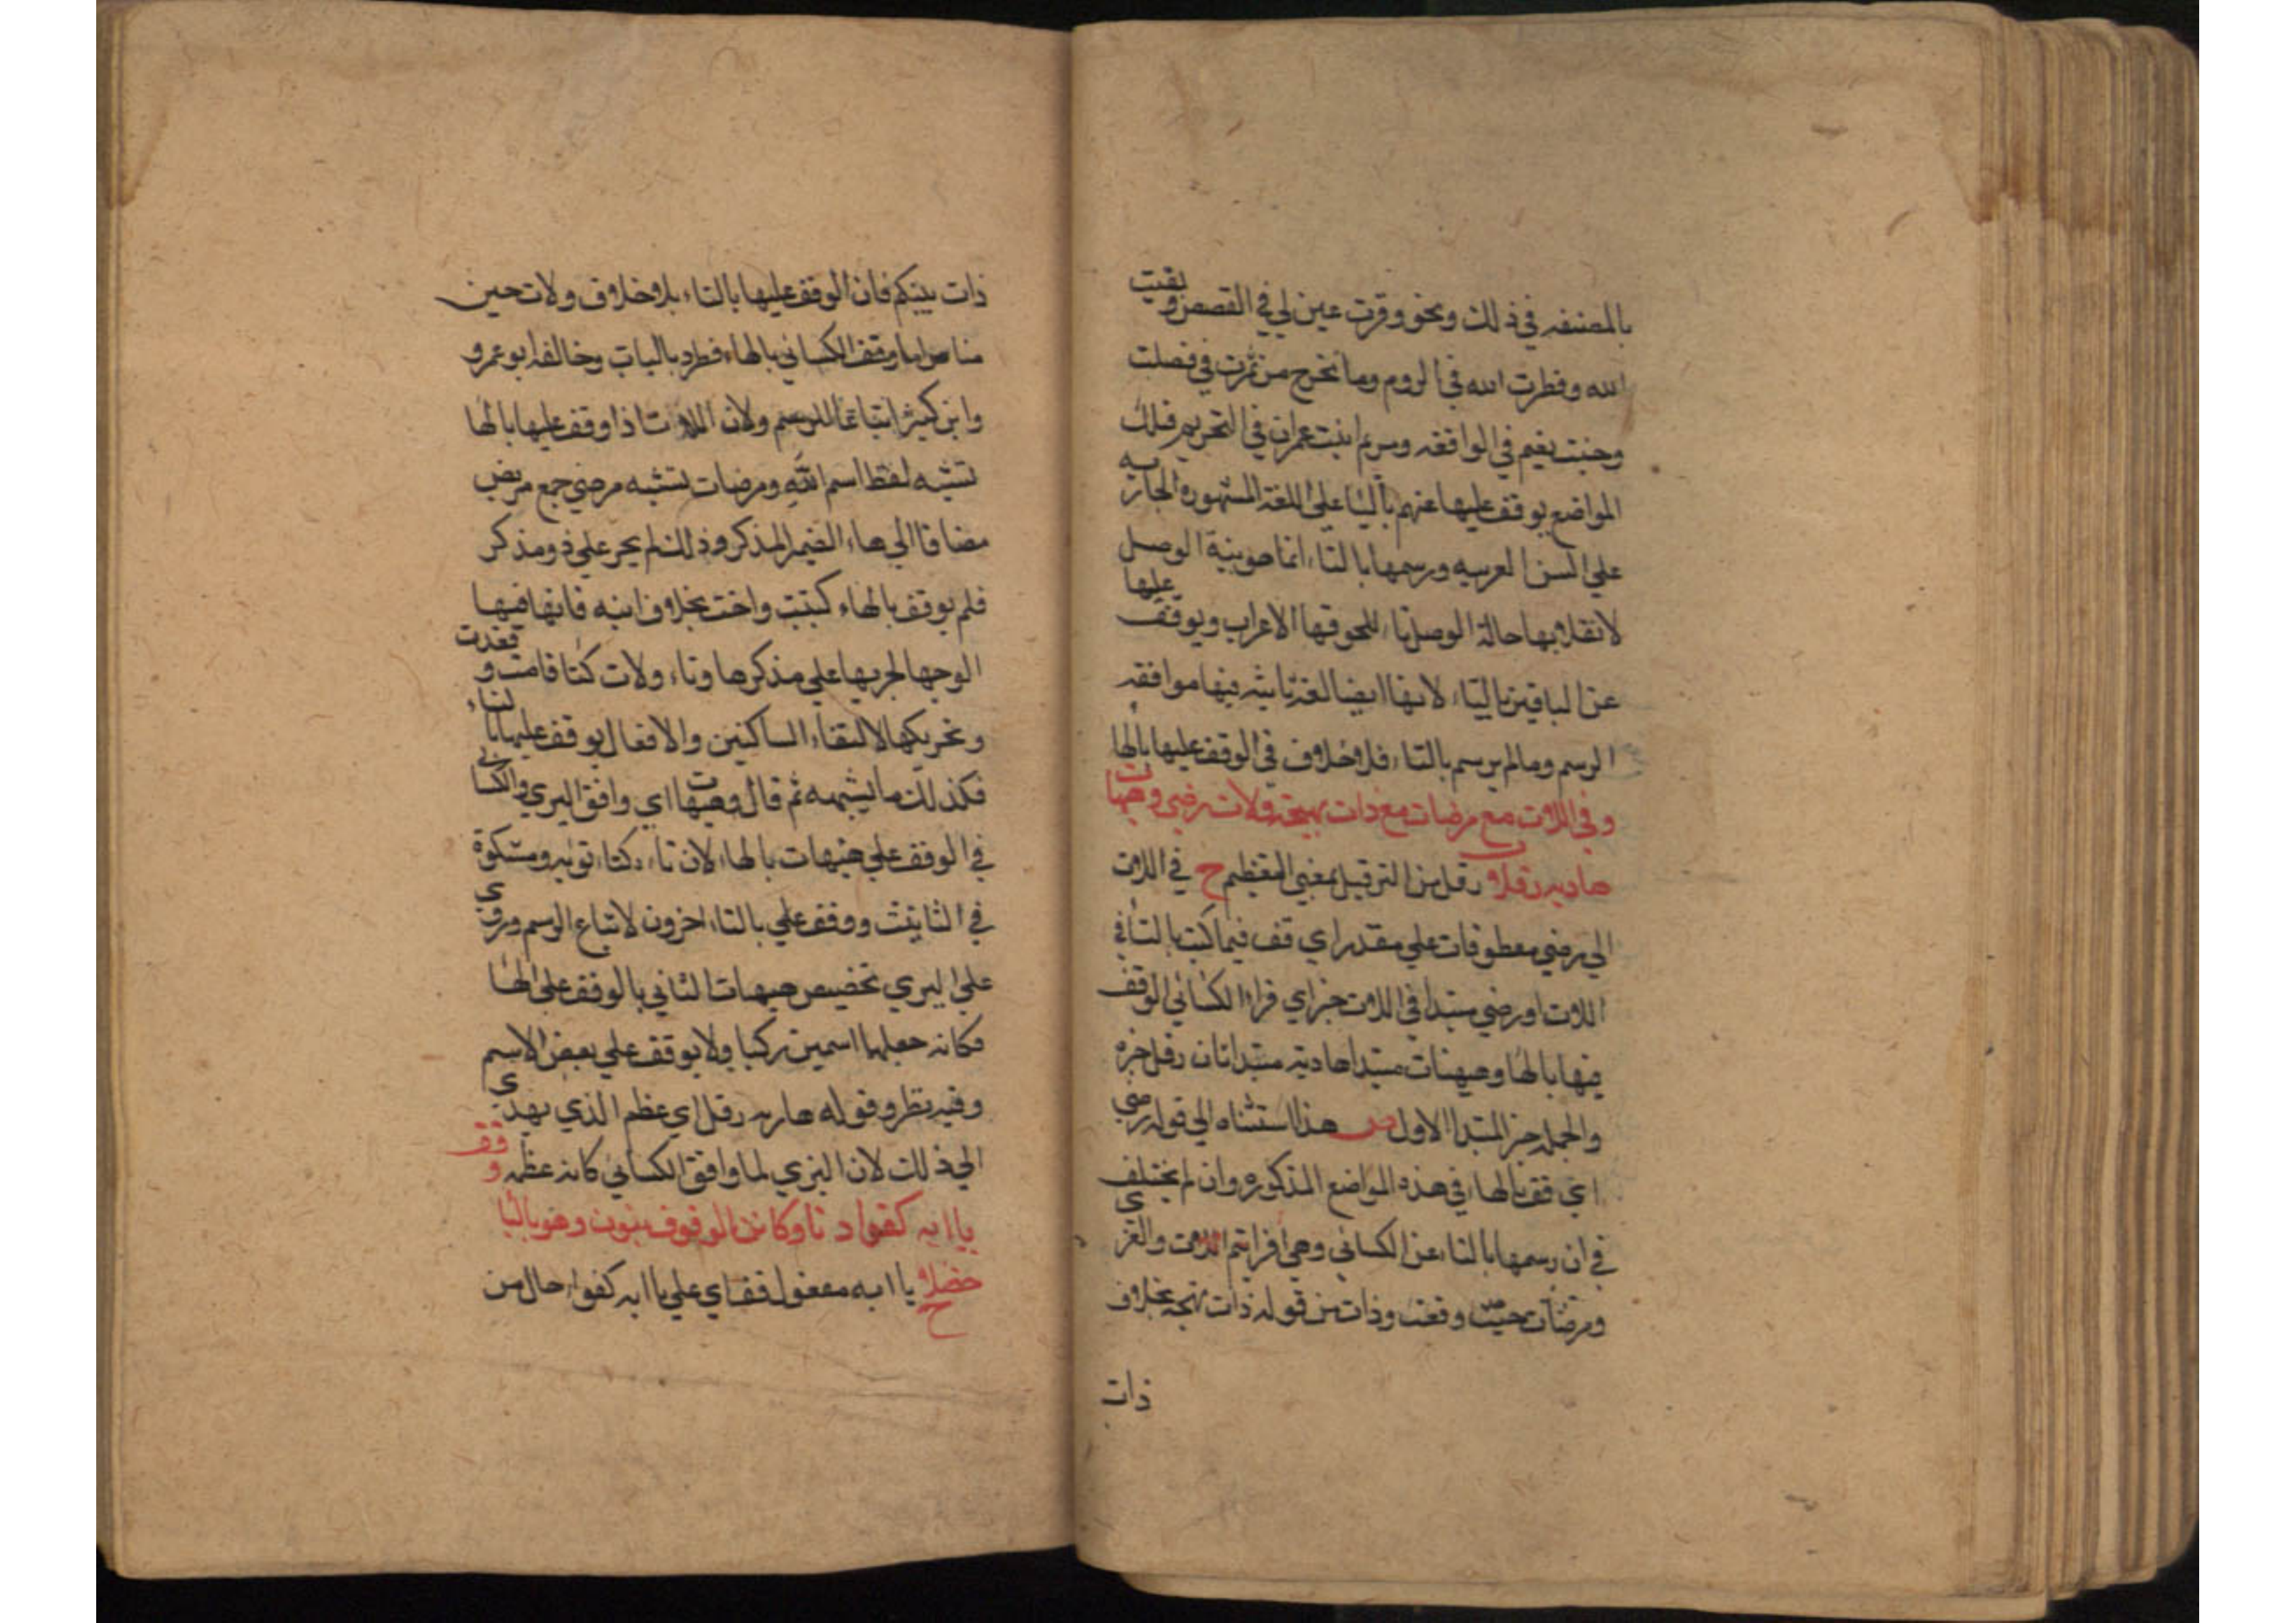 بالمصنفه في ذلك ونحو وقرت عين لي في القصص وبقيت
الله وفطرت الله في الروم وما تخرج من ثمرت في فصلت
وجنت نعيم في الواقعه ومريم ابنت عمران في التحريم فتلك
المواضع يوقف عليها عنهم بالها على اللغة المشهوره الجاريه
علي السن العربيه ورسمها بالتاء انما هو بنية الوصل
لانقلابها حالة الوصل تاء للحوقها الاعراب ويوقف عليها
عن الباقين بالتاء لانها ايضا لغة ثابته فيها موافقه
الرسم وما لم يرسم بالتاء فلا خلاف في الوقف عليها بالها
وفي اللات مع مرضات مع ذات بهجة ولات رضي وهيهات
هاديه رفلا رفل من الترفيل بمعني التعظيم ح في اللات
الي رضي معطوفات علي مقدر اي قف فيما كتب بالتا في
اللات او رضي مبتدا في اللات خبر اي قراءا لكسائي الوقف
فيها بالها وهيهات مبتدا هاديه مبتدا ثان رفل خبره
والجمله خبر المبتدا الاول ص هذا استثناه الي قوله رضي
اي قف بالهاء في هذه المواضع المذكوره وان لم يختلف
في ان رسمها بالتاء عن الكسائي وهي افرايتم اللات والعزي
ومرضات حيث وقعت وذات من قوله ذات بهجه بخلاف
ذات
ذات بينكم فان الوقف عليها بالتاء بلا خلاف ولات حين
مناص اما وقف الكسائي بالهاء فطرد بالباب وخالفه ابو عمرو
وابن كثير اتباعا للرسم ولان اللات اذا وقف عليها بالها
تشبه لفظ اسم الله ومرضات تشبه مرضي جمع مريض
مضافا الي هاء الضمير المذكر وذات لم يجر علي ذو مذكر
فلم يوقف بالهاء كبنت واخت بخلاف ابنه فانها فيها
الوجها لجريها علي مذكرها وتاء ولات كتا قامت وقعدت
وتحريكها لالتقاء الساكنين والافعال يوقف عليها بالتاء
فكذلك ما يشبهه ثم قال وهيهات اي وافق البزي والكسائي
في الوقف علي هيهات بالهاء لان تاءه كتاء توبه ومشكوة
في التانيث ووقف علي بالتاء اخرون لاتباع الرسم وروي
علي البزي تخصيص هيهات الثاني بالوقف علي الها
فكانه جعلها اسمين تركبا ولا يوقف علي بعض الاسم
وفيه نظر وقوله هاديه رفل اي عظم الذي يهدي
الي ذلك لان البزي لما وافق الكسائي كانه عظمه وقف
يا ابه كفوا دنا وكاين الوقوف بنون وهو باليا
حصلا ح يا ابه مفعول قف اي علي يا ابه كفوا حال من